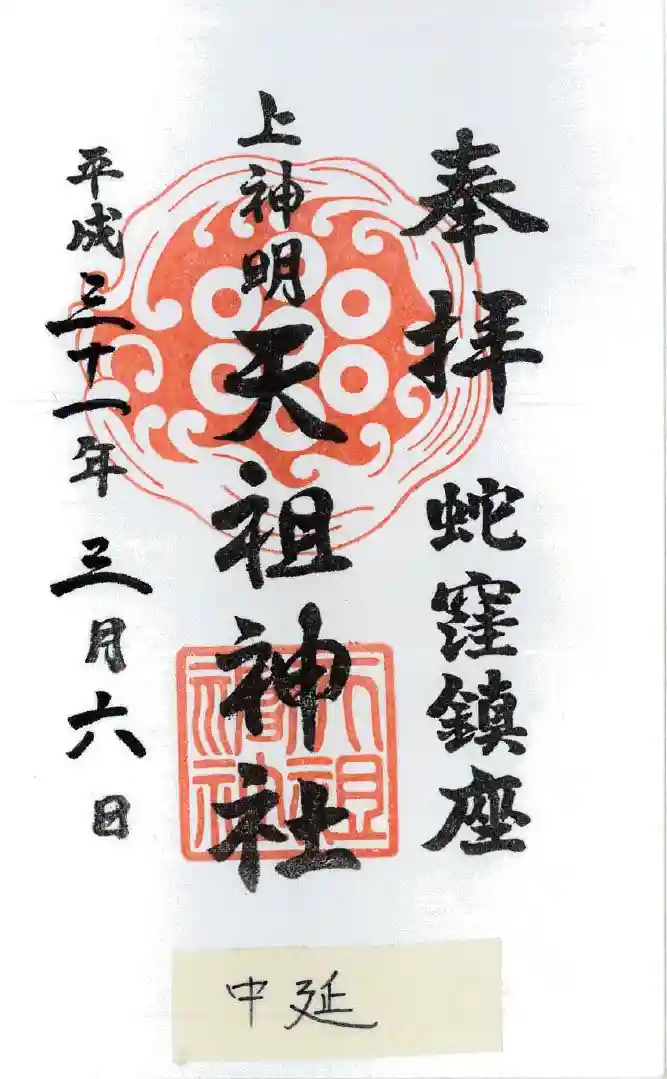 奉拝 蛇窪鎮座
上神明天祖神社
平成三十一年三月六日
中延